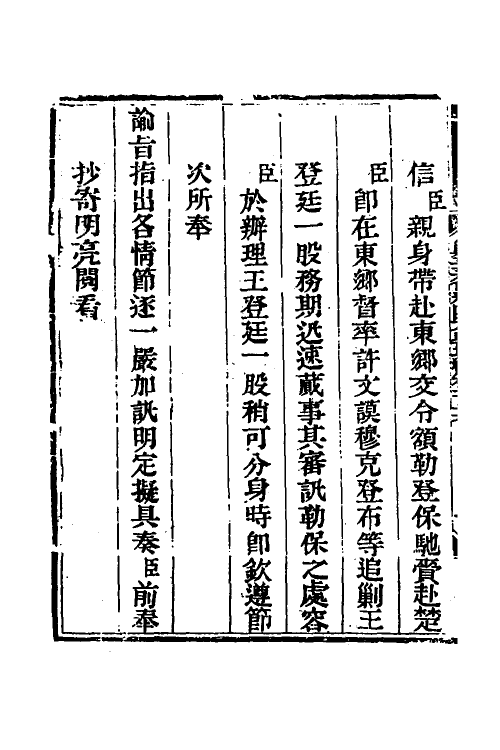 信臣親身帶赴東鄉交令額勒登保馳賫赴楚
臣卽在東鄉督率許文謨穆克登布等追剿王
登廷一股務期迅速蕆事其審訊勒保之處容
臣於辦理王登廷一股稍可分身時卽欽遵節
次所奉
諭旨指出各情節逐一嚴加訊明定擬具奏臣前奉
抄寄明亮閱看